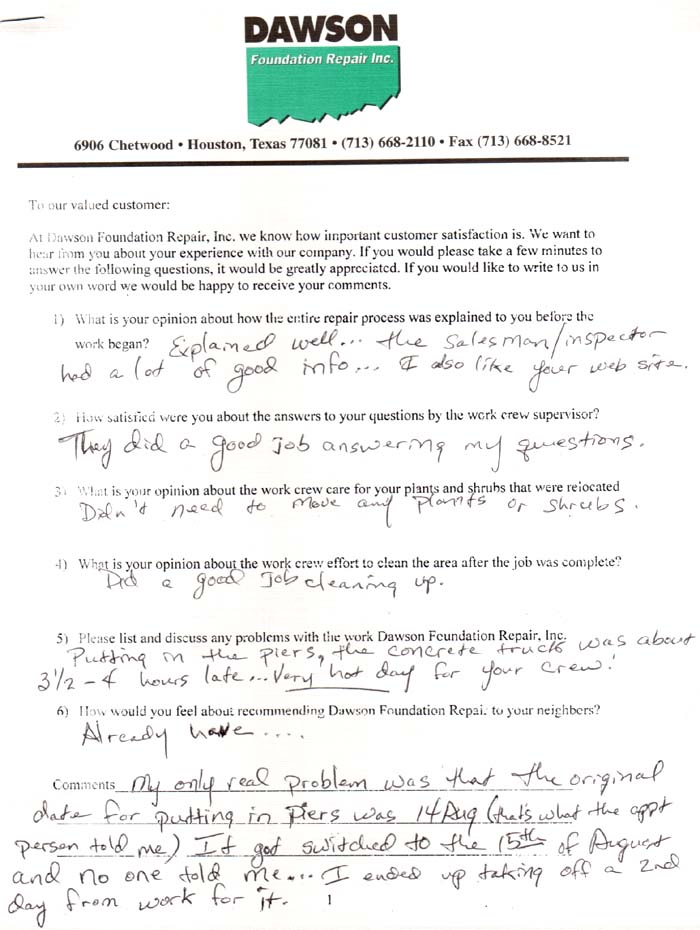 DAWSON
Foundation Repair Inc.
6906 Chetwood • Houston, Texas 77081 • (713) 668-2110 • Fax (713) 668-8521
To our valued customer:
At Dawson Foundation Repair, Inc. we know how important customer satisfaction is. We want to
hear from you about your experience with our company. If you would please take a few minutes to
answer the following questions, it would be greatly appreciated. If you would like to write to us in
your own word we would be happy to receive your comments.
1) What is your opinion about how the entire repair process was explained to you before the
work began? Explained well... the salesman/inspector
had a lot of good info... I also like your web site.
2) How satisfied were you about the answers to your questions by the work crew supervisor?
They did a good job answering my questions.
3) What is your opinion about the work crew care for your plants and shrubs that were relocated
Didn't need to move any plants or shrubs.
4) What is your opinion about the work crew effort to clean the area after the job was complete?
Did a good job cleaning up.
5) Please list and discuss any problems with the work Dawson Foundation Repair, Inc.
Putting in the piers, the concrete truck was about
3 1/2 - 4 hours late... Very hot day for your crew!
6) How would you feel about recommending Dawson Foundation Repair to your neighbors?
Already have....
Comments My only real problem was that the original
date for putting in Piers was 14 Aug (that's what the appt
person told me) It got switched to the 15th of August
and no one told me... I ended up taking off a 2nd
day from work for it. 1